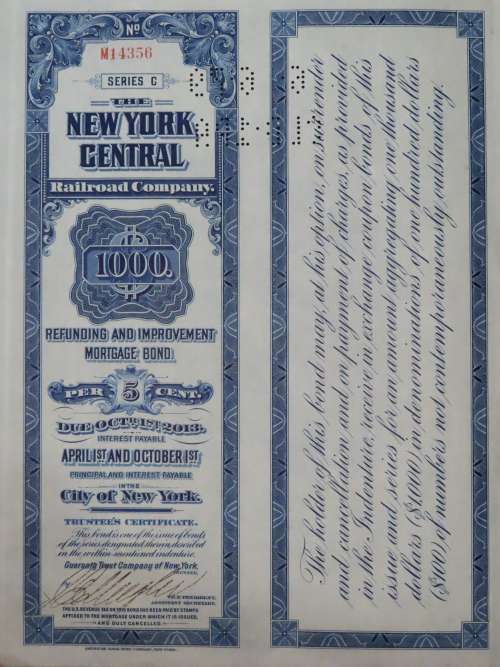 No
M14356
SERIES C
THE
NEW YORK
CENTRAL
Railroad Company.
1000.
REFUNDING AND IMPROVEMENT
MORTGAGE BOND
PER 5 CENT.
DUE OCT. 1ST 2013.
INTEREST PAYABLE
APRIL 1ST AND OCTOBER 1ST
PRINCIPAL AND INTEREST PAYABLE
IN THE
City of New York.
TRUSTEE'S CERTIFICATE.
This bond is one of the issue of bonds
of the series designated therein, described
in the within-mentioned indenture.
Guaranty Trust Company of New York,
TRUSTEE,
by
VICE PRESIDENT.
ASSISTANT SECRETARY.
THE U.S. REVENUE TAX ON THIS BOND HAS BEEN PAID BY STAMPS
AFFIXED TO THE MORTGAGE UNDER WHICH IT IS ISSUED,
AND DULY CANCELLED.
AMERICAN BANK NOTE COMPANY, NEW YORK.
The holder of this bond may, at his option, on surrender
and cancellation and on payment of charges, as provided
in the Indenture, receive in exchange coupon bonds of this
issue and series for an amount aggregating one thousand
dollars ($1000) in denominations of one hundred dollars
($100) of numbers not contemporaneously outstanding.